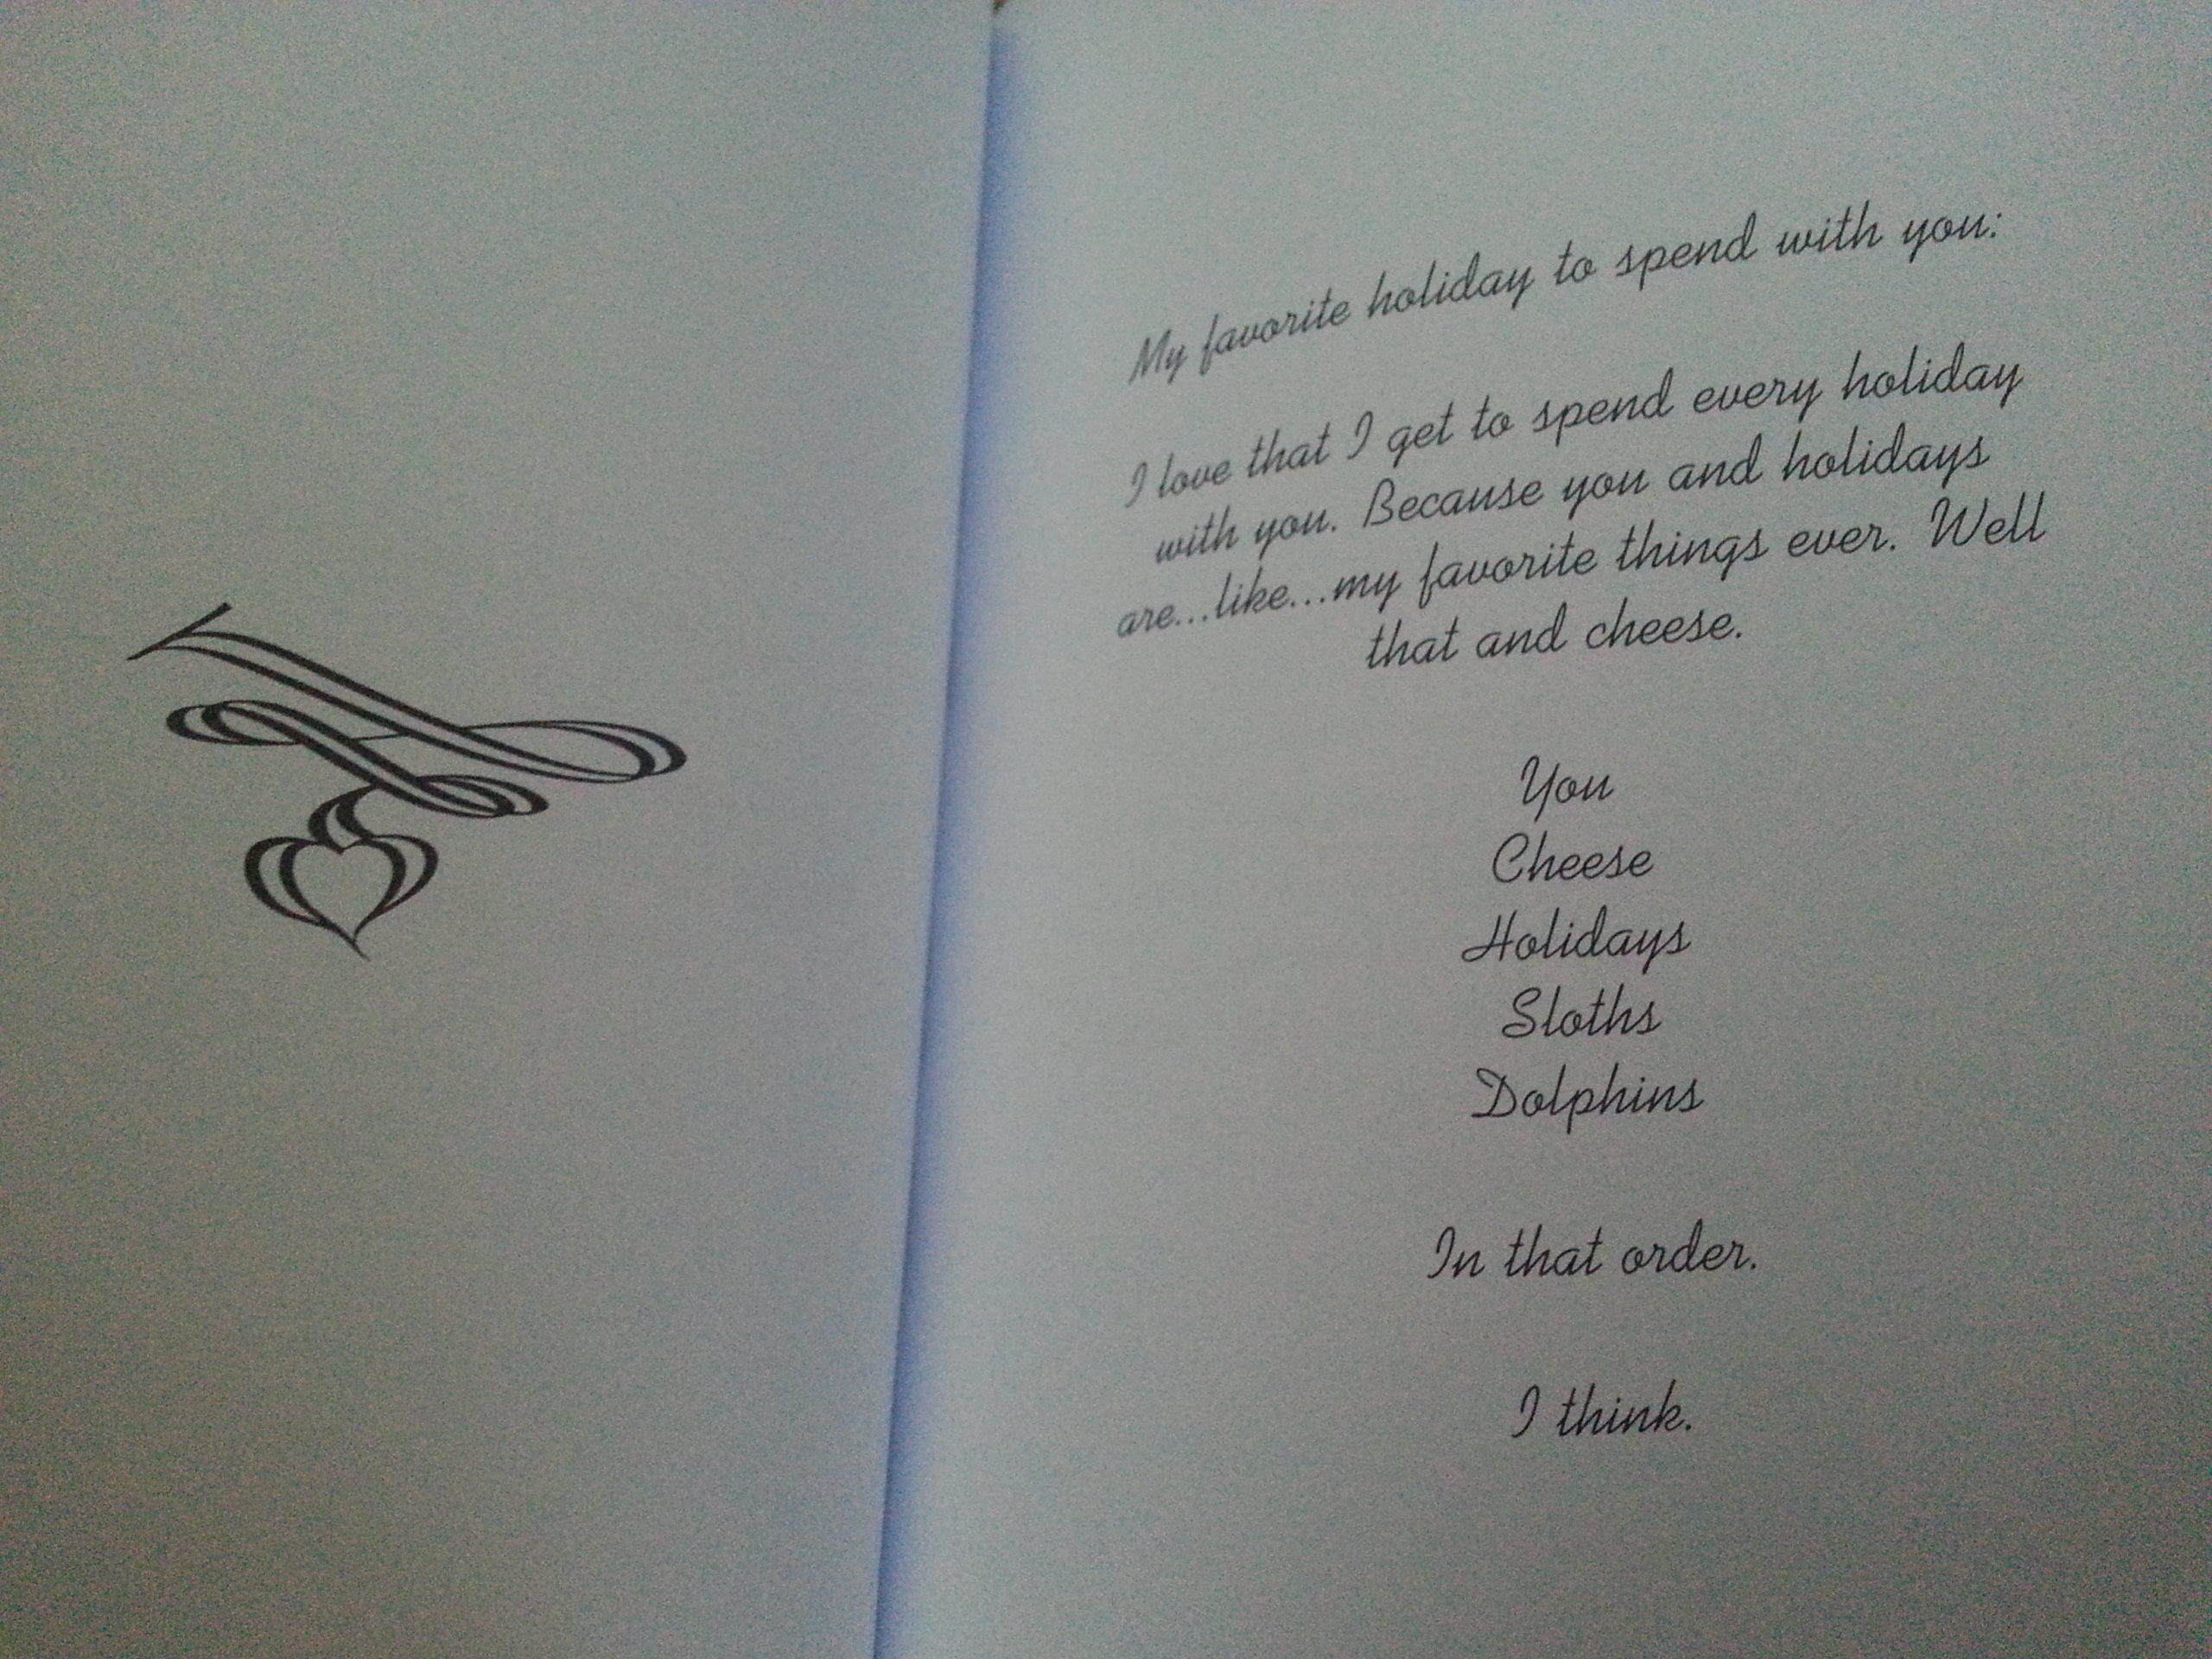 My favorite holiday to spend with you:
I love that I get to spend every holiday
with you. Because you and holidays
are...like...my favorite things ever. Well
that and cheese.
You
Cheese
Holidays
Sloths
Dolphins
In that order.
I think.